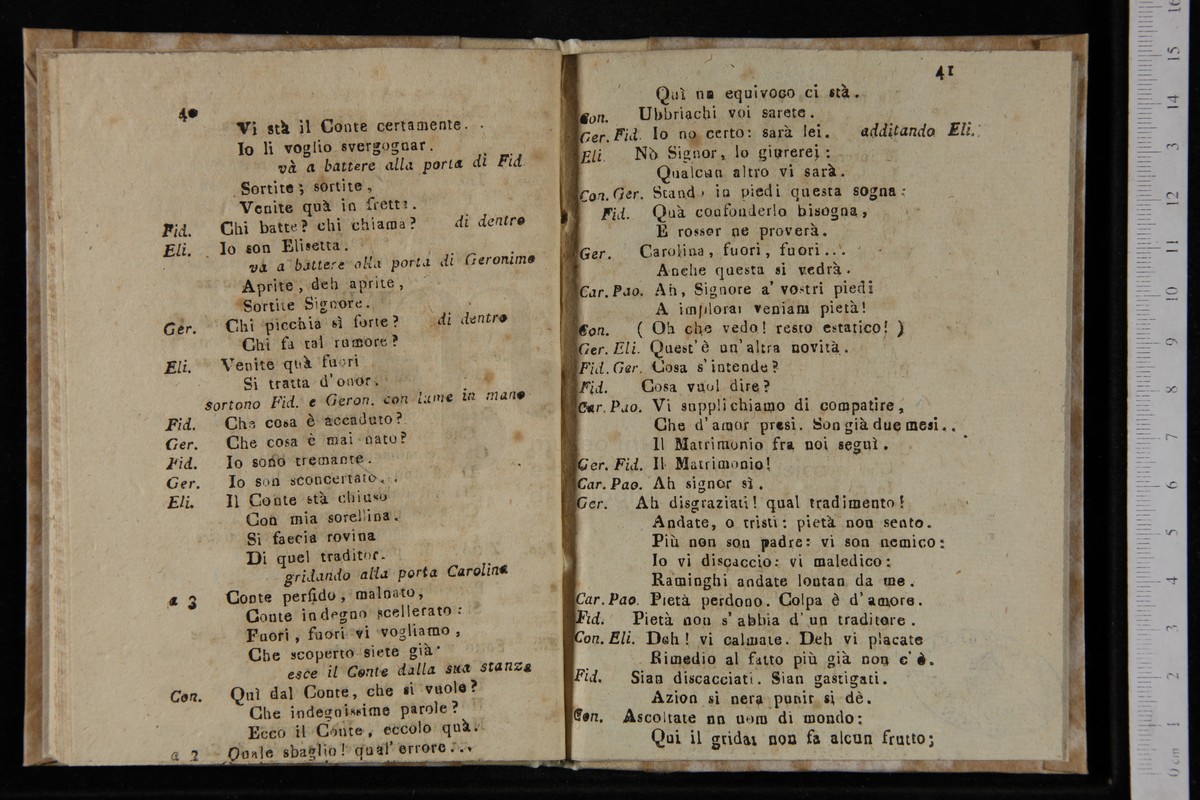 40
Vi stà il Conte certamente.
Io li voglio svergognar.
và a battere alla porta di Fid.
Sortite; sortite,
Venite quà in fretta.
Fid. Chi batte? chi chiama? di dentro
Eli. Io son Elisetta.
và a battere alla porta di Geronimo
Aprite, deh aprite,
Sortite Signore.
Ger. Chi picchia sì forte? di dentro
Chi fa tal rumore?
Eli. Venite quà fuori
Si tratta d'onor.
sortono Fid. e Geron. con lume in mano
Fid. Che cosa è accaduto?
Ger. Che cosa è mai nato?
Fid. Io sono tremante.
Ger. Io son sconcertato.
Eli. Il Conte stà chiuso
Con mia sorellina.
Si faecia rovina
Di quel traditor.
gridando alla porta Carolina
a 3 Conte perfido, malnato,
Conte indegno scellerato:
Fuori, fuori vi vogliamo,
Che scoperto siete già
esce il Conte dalla sua stanza
Con. Quì dal Conte, che si vuole?
Che indegnissime parole?
Ecco il Conte, eccolo quà.
a 2 Quale sbaglio! qual' errore...
41
Quì un equivoco ci stà.
Con. Ubbriachi voi sarete.
Ger. Fid. Io no certo: sarà lei. additando Eli.
Eli. Nò Signor, lo giurerei:
Qualcun altro vi sarà.
Con. Ger. Stando in piedi questa sogna:
Fid. Quà confonderlo bisogna,
E rossor ne proverà.
Ger. Carolina, fuori, fuori...
Anche questa si vedrà.
Car. Pao. Ah, Signore a' vostri piedi
A implorar veniam pietà!
Con. ( Oh che vedo! resto estatico! )
Ger. Eli. Quest'è un'altra novità.
Fid. Ger. Cosa s'intende?
Fid. Cosa vuol dire?
Car. Pao. Vi supplichiamo di compatire,
Che d'amor presi. Son già due mesi..
Il Matrimonio fra noi seguì.
Ger. Fid. Il Matrimonio!
Car. Pao. Ah signor sì.
Ger. Ah disgraziati! qual tradimento!
Andate, o tristi: pietà non sento.
Più non son padre: vi son nemico:
Io vi discaccio: vi maledico:
Raminghi andate lontan da me.
Car. Pao. Pietà perdono. Colpa è d'amore.
Fid. Pietà non s'abbia d'un traditore.
Con. Eli. Deh! vi calmate. Deh vi placate
Rimedio al fatto più già non c'è.
Fid. Sian discacciati. Sian gastigati.
Azion si nera punir si dè.
Con. Ascoltate nn uom di mondo:
Qui il gridar non fa alcun frutto;